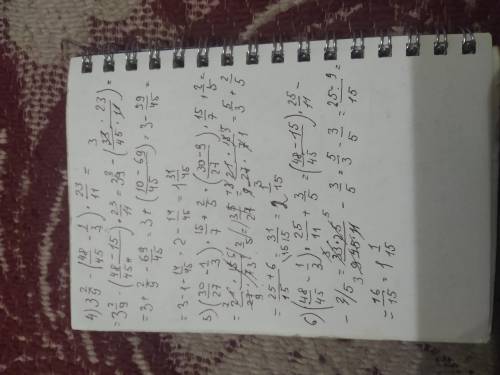 4) 3 2/9 - (48/45 - 1/3) · 23/11 =
= 3 2/9 - (48-15/45) · 23/11 = 3 2/9 - (33/45 · 23/11) =
= 3 + 2/9 - 69/45 = 3 + (10 - 69/45) = 3 - 59/45 =
= 3 - 1 - 14/45 = 2 - 14/45 = 1 31/45
5) (30/27 - 1/3) · 15/7 + 2/5 = (30-9/27) · 15/7 + 2/5 =
= 5/3 + 2/5 =
= 25+6/15 = 31/15 = 2 1/15
6) (48/45 - 1/3) · 25/11 - 3/5 = (48-15/45) · 25/11 -
- 3/5 = 33·25/45·11 - 3/5 = 5/3 - 3/5 = 25-9/15 =
= 16/15 = 1 1/15